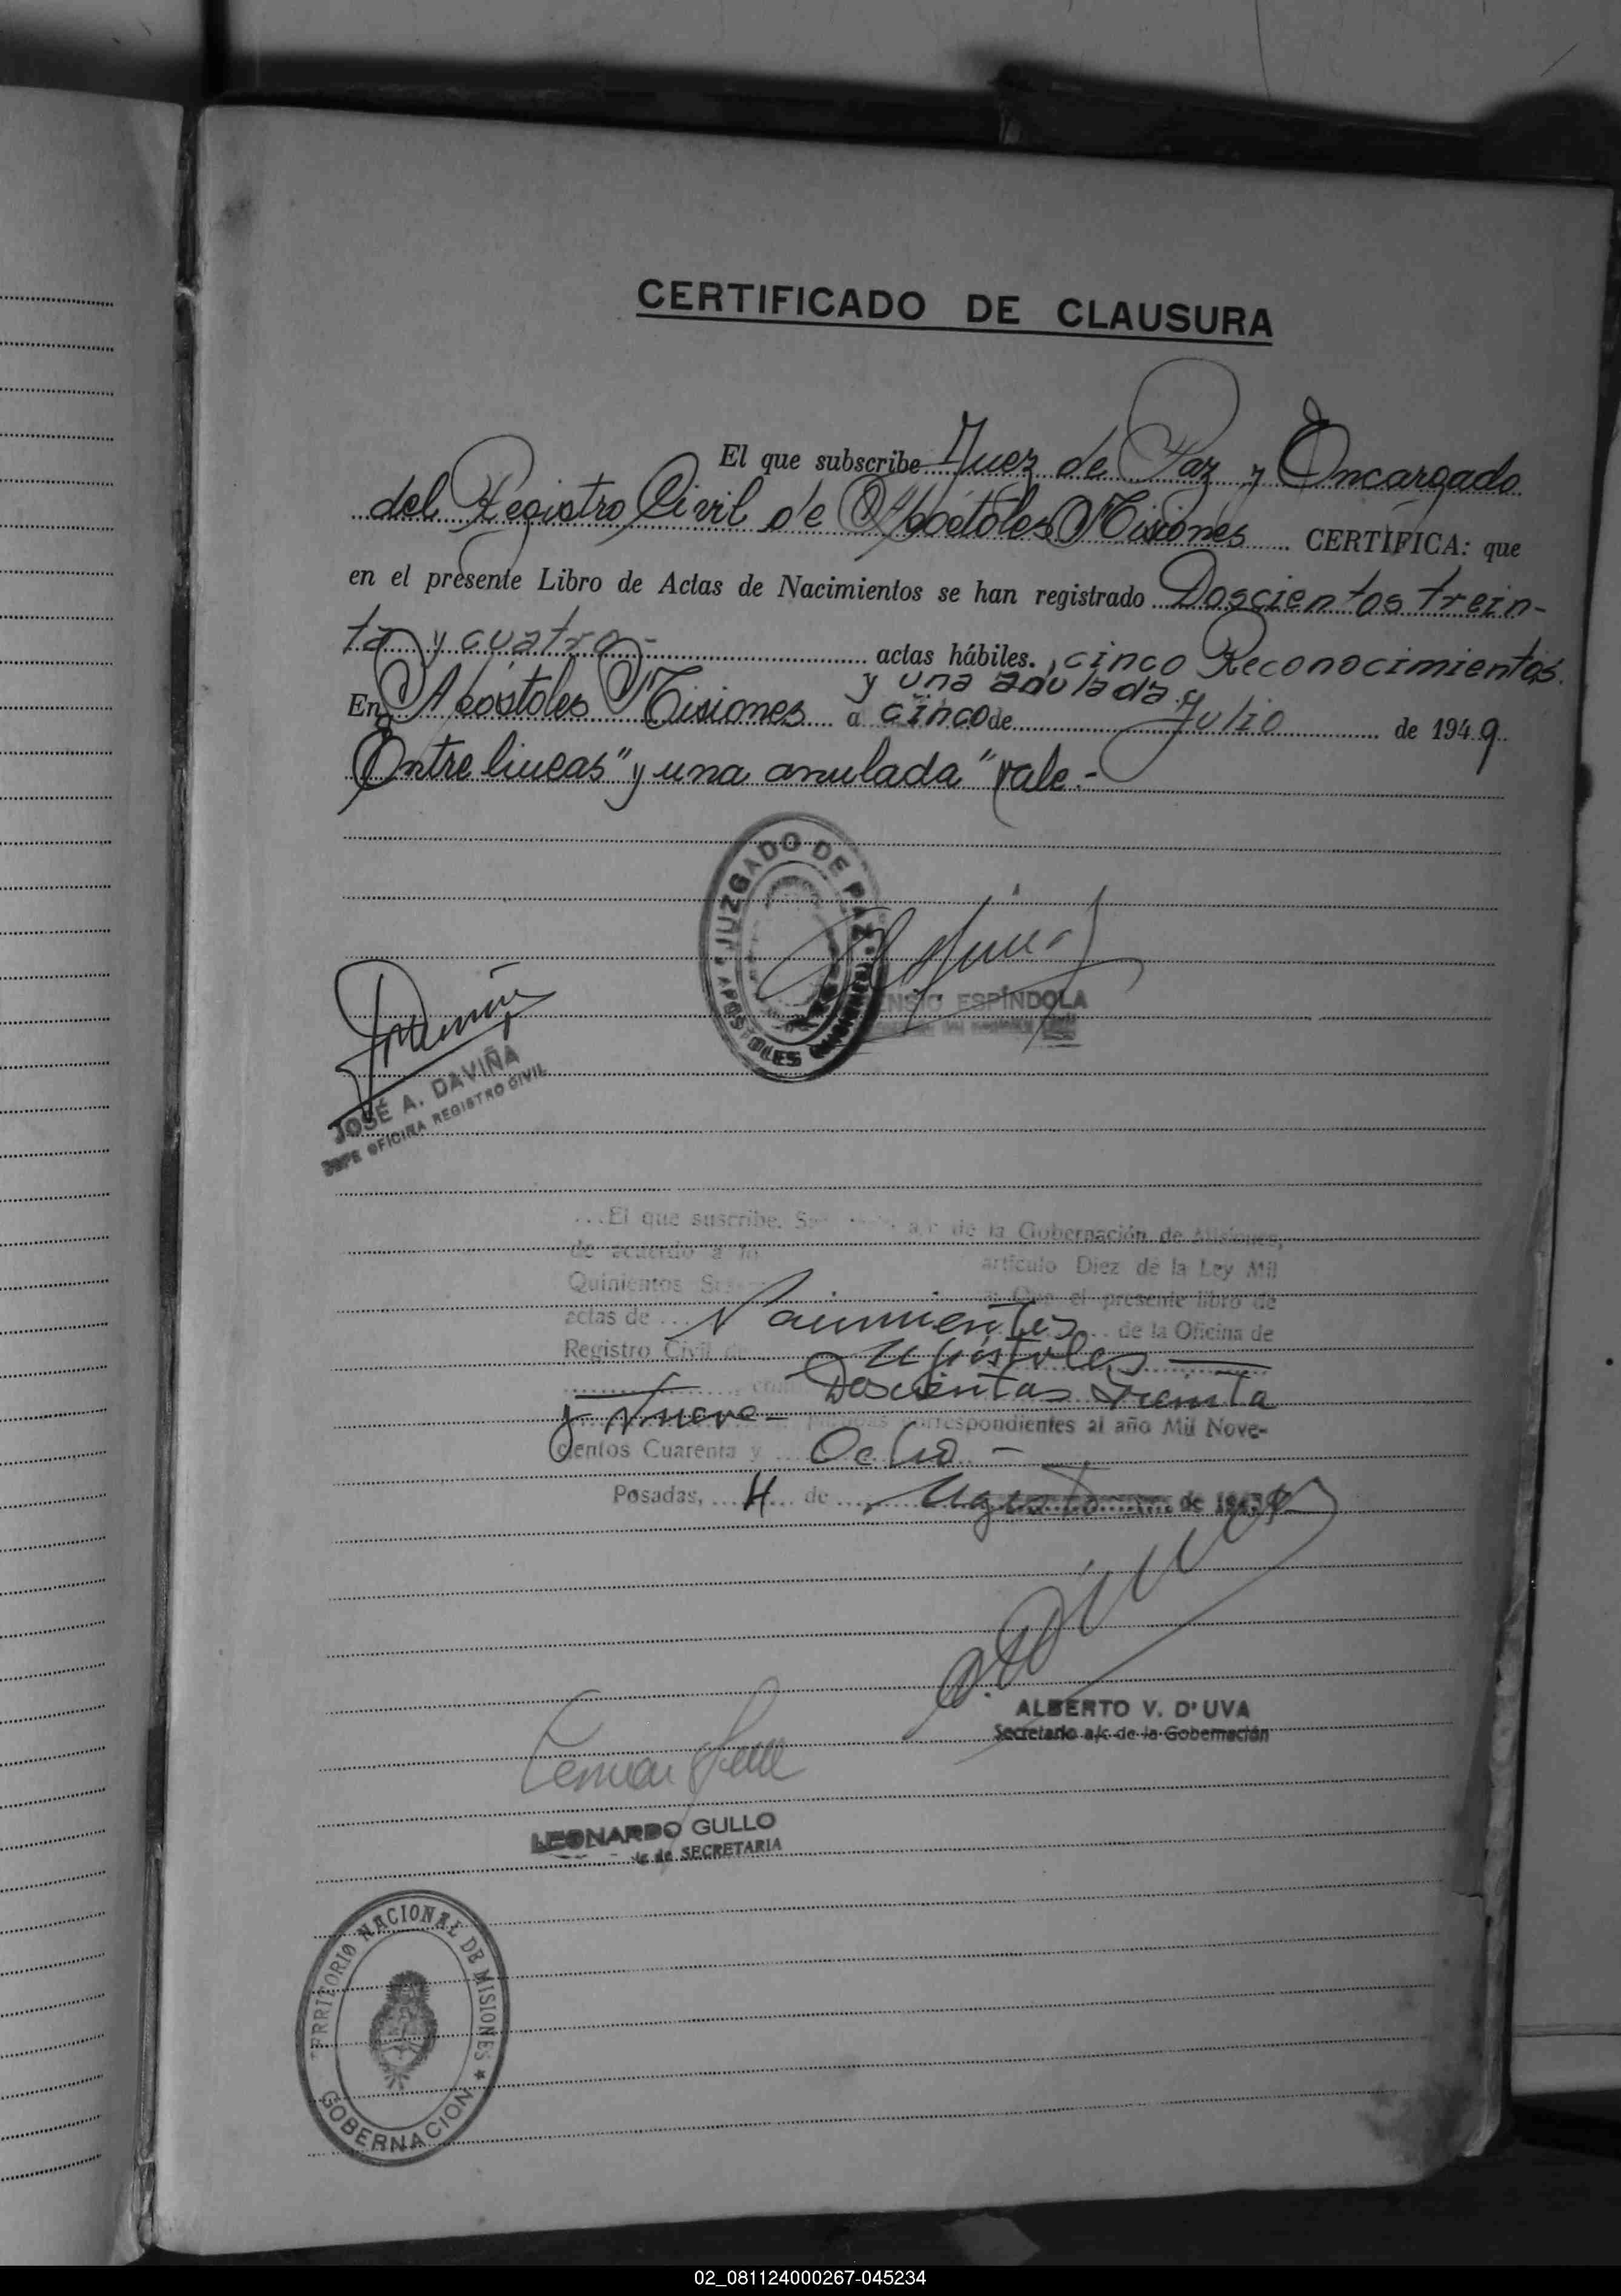 CERTIFICADO DE CLAUSURA
El que subscribe Juez de Paz y Encargado
del Registro Civil de Apóstoles Misiones CERTIFICA: que
en el presente Libro de Actas de Nacimientos se han registrado Doscientos trein-
ta y cuatro.- actas hábiles. , cinco Reconocimientos.
y una anulada.
En Apóstoles Misiones a cinco de Julio de 1949.
Entre lineas "y una anulada" vale.-
JUZGADO DE PAZ
APOSTOLES (MISIONES)
ESPÍNDOLA
JOSÉ A. DAVIÑA
JEFE OFICINA REGISTRO CIVIL
...El que suscribe, a/c de la Gobernación de Misiones,
de acuerdo a lo artículo Diez de la Ley Mil
Quinientos Que el presente libro de
actas de ... Nacimientos ... de la Oficina de
Registro Civil de Apóstoles
Doscientas Treinta
y Nueve- correspondientes al año Mil Nove-
cientos Cuarenta y ... Ocho.-
Posadas, ... 4 ... de ... Agosto de 194
ALBERTO V. D'UVA
Secretario a/c de la Gobernación
LEONARDO GULLO
de SECRETARIA
TERRITORIO NACIONAL DE MISIONES
GOBERNACION
02_081124000267-045234